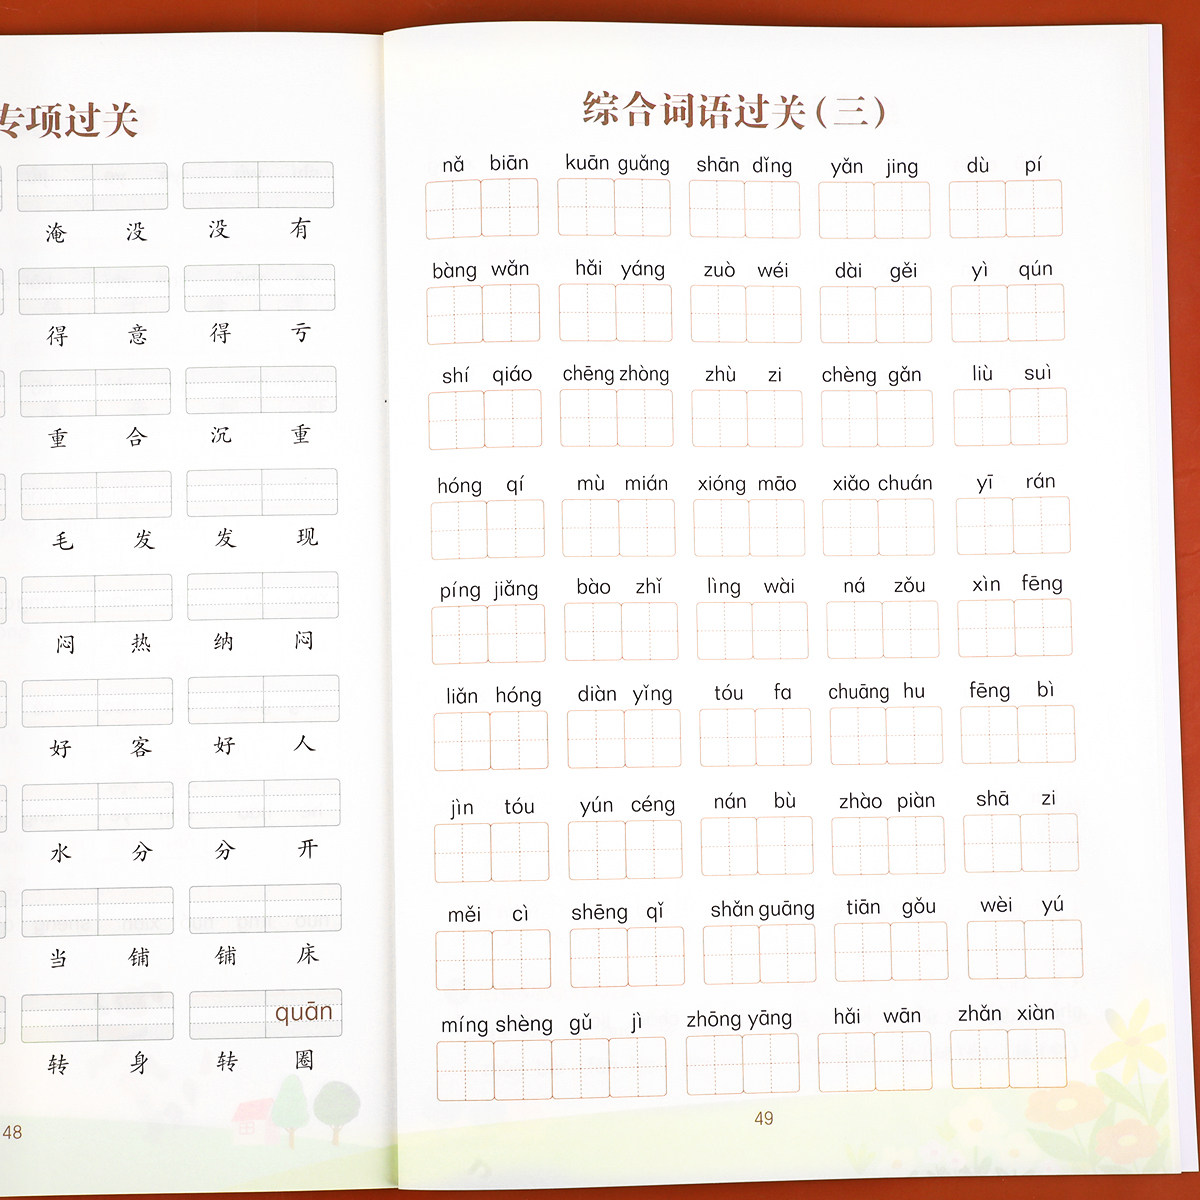 专项过关
淹 没 没 有
得 意 得 亏
重 合 沉 重
毛 发 发 现
闷 热 纳 闷
好 客 好 人
水 分 分 开
当 铺 铺 床
quān
转 身 转 圈
48
综合词语过关(三)
nǎ biān kuān guǎng shān dǐng yǎn jing dù pí
bàng wǎn hǎi yáng zuò wéi dài gěi yì qún
shí qiáo chēng zhòng zhù zi chèng gǎn liù suì
hóng qí mù mián xióng māo xiǎo chuán yī rán
píng jiǎng bào zhǐ lìng wài ná zǒu xìn fēng
liǎn hóng diàn yǐng tóu fa chuāng hu fēng bì
jìn tóu yún céng nán bù zhào piàn shā zi
měi cì shēng qǐ shǎn guāng tiān gǒu wèi yú
míng shèng gǔ jì zhōng yāng hǎi wān zhǎn xiàn
49